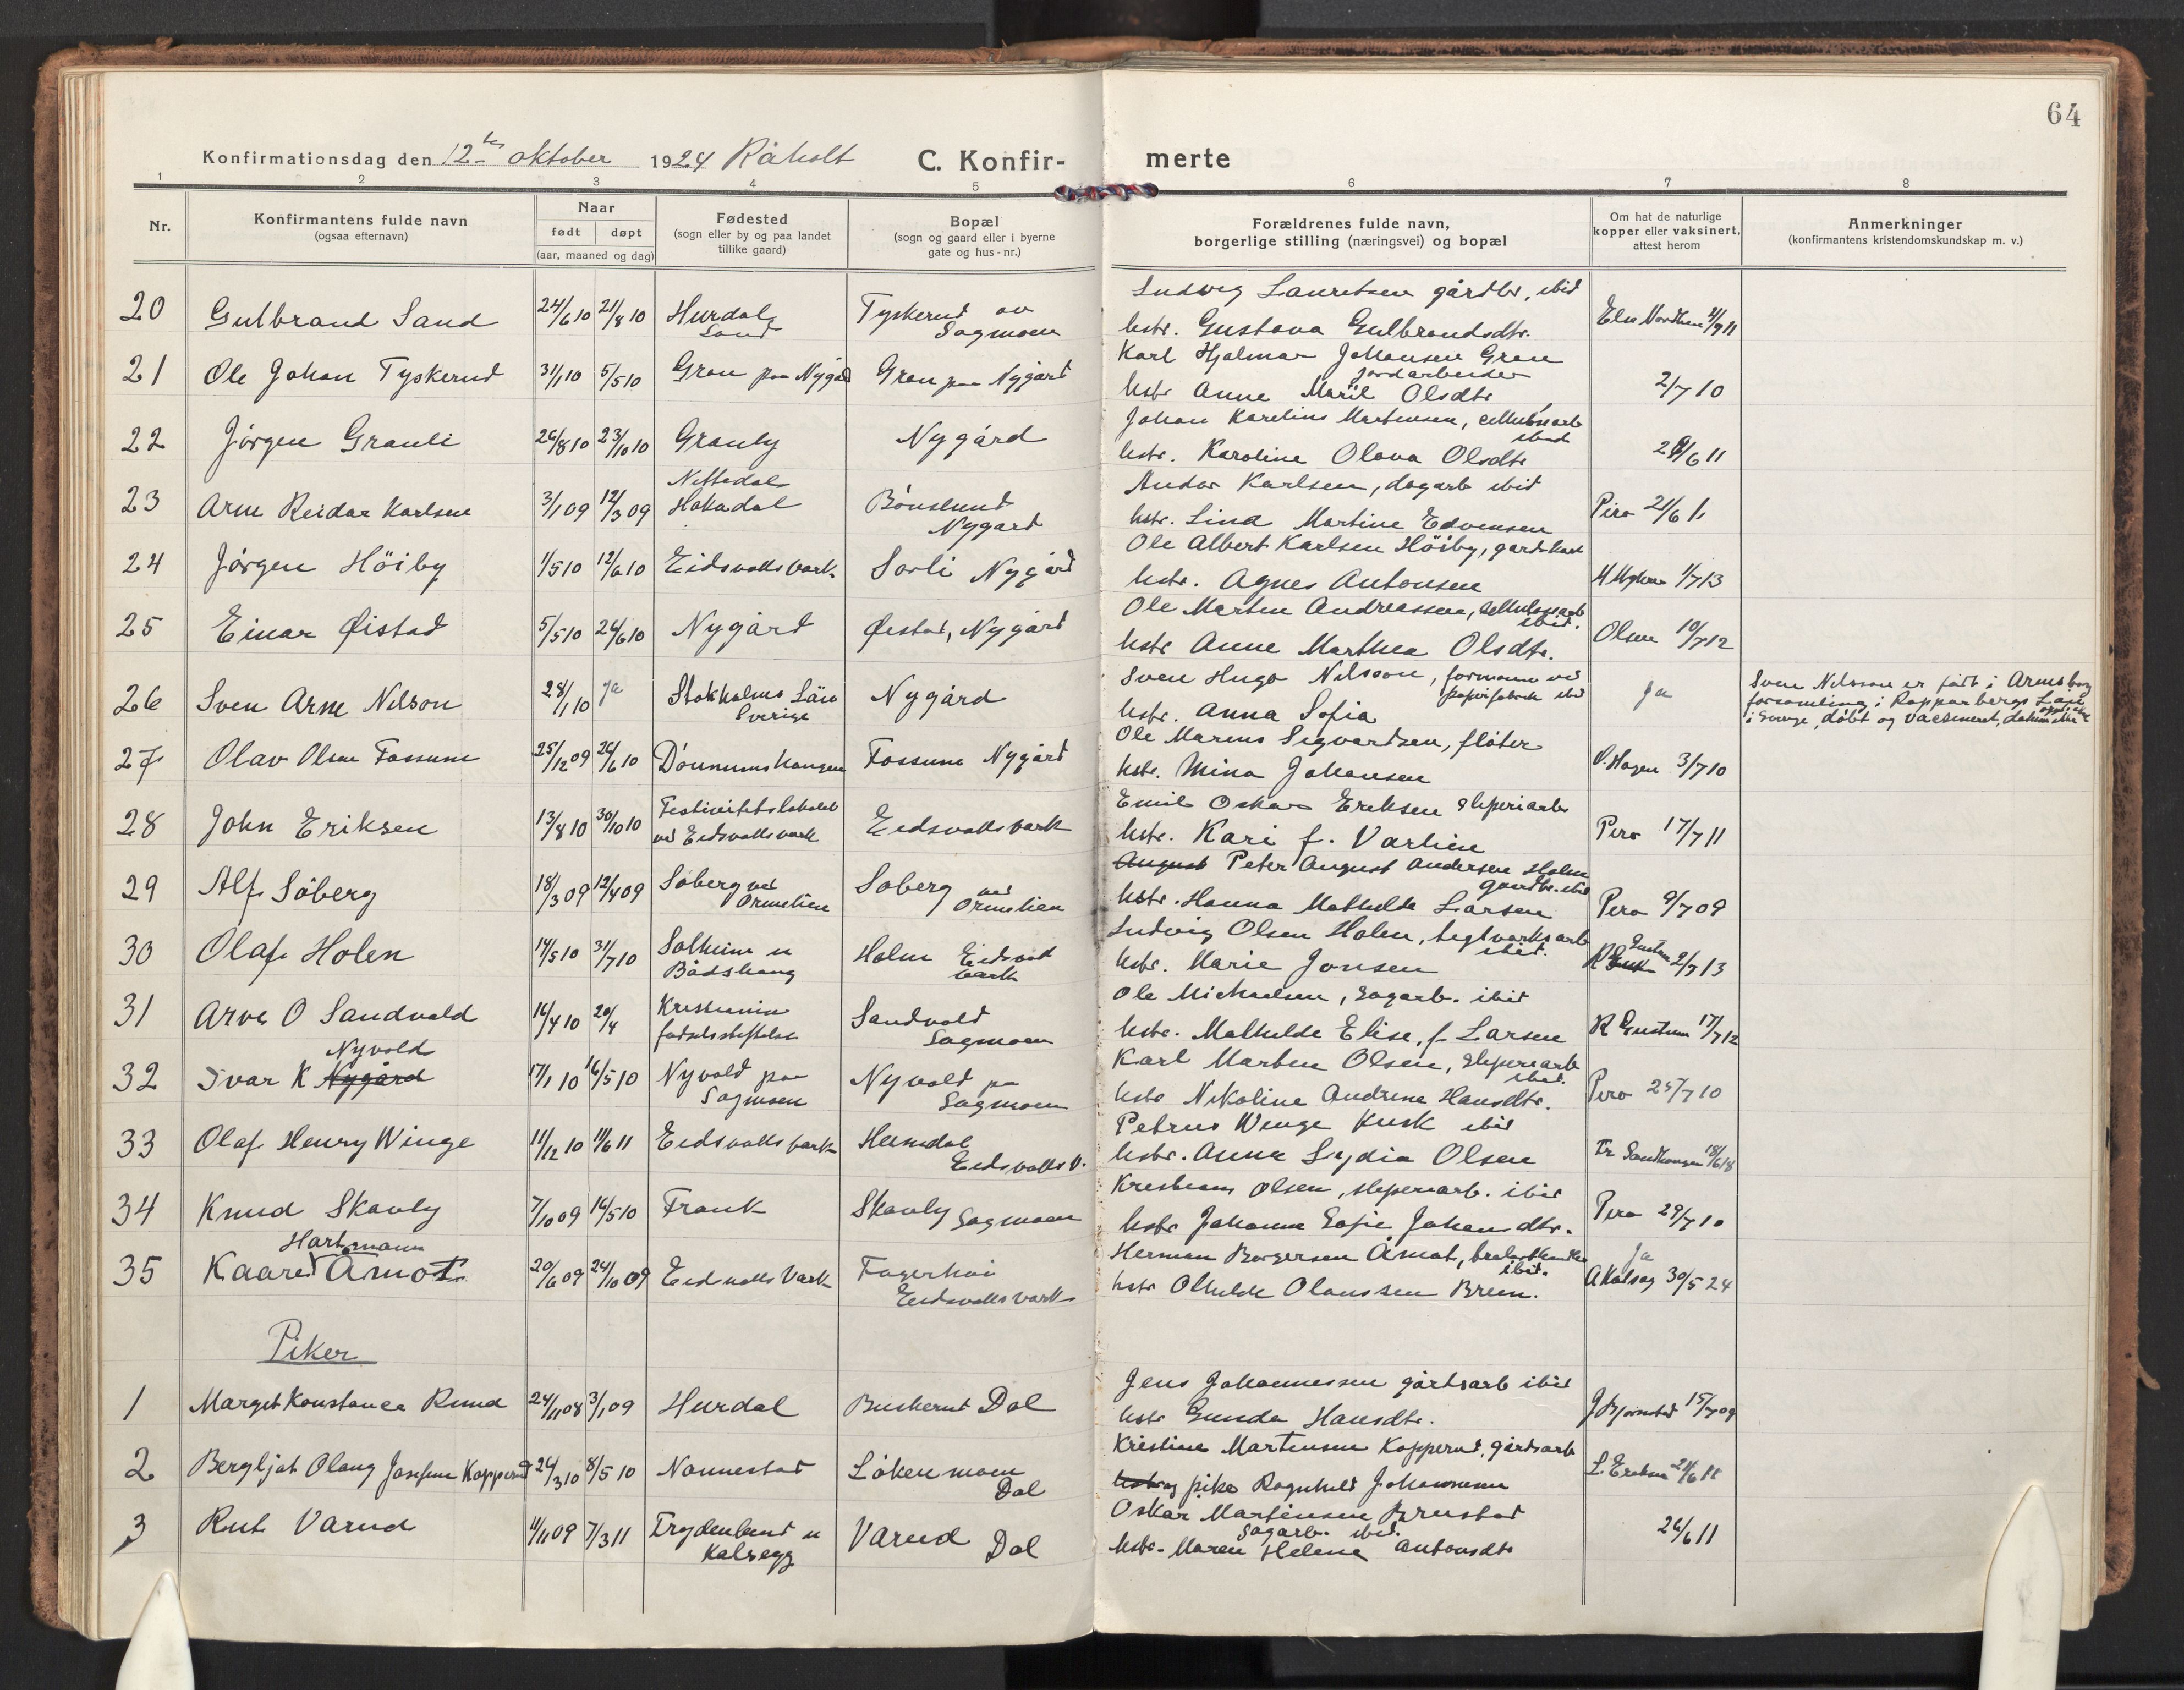 64
Konfirmationsdag den 12te oktober 1924 Råholt C. Konfir- merte
1 2 3 4 5 6 7 8
Nr.
Konfirmantens fulde navn
(ogsaa efternavn)
Naar
født døpt
(aar, maaned og dag)
Fødested
(sogn eller by og paa landet
tillike gaard)
Bopæl
(sogn og gaard eller i byerne
gate og hus-nr.)
Forældrenes fulde navn,
borgerlige stilling (næringsvei) og bopæl
Om hat de naturlige
kopper eller vaksinert,
attest herom
Anmerkninger
(konfirmantens kristendomskundskap m. v.)
Ludvig Lauritsen gårdbr, ibid
20 Gulbrand Sand 24/6 10 21/8 10 Hurdal Sand Tyskerud av Sagmoen
hstr. Gustava Gulbrandsdtr. /9 11
Karl Hjalmar Johansen Gran
jordarbeider
21 Ole Johan Tyskerud 31/1 10 5/5 10 Gran paa Nygård Gran paa Nygård
hstr Anne Maril Olsdtr 2/7 10
Johan Karelius Martinsen, cellulosearb
ibid
22 Jörgen Granli 26/8 10 23/10 10 Granly Nygård
hstr. Karoline Olava Olsdtr /6 11
Andor Karlsen, dagarb ibid
23 Arne Reidar Karlsen 3/1 09 12/3 09 Nittedal Hakadal Bönslund Nygard
hstr. Lina Martine Edvensen Piro 21/6 11
Ole Albert Karlsen Höiby, gardskar
24 Jörgen Höiby 1/5 10 12/6 10 Eidsvolls værk Sorli Nygård
hstr. Agnes Antonsen 1/7 13
Ole Martin Andreassen, cellulosearb
ibid.
25 Einar Øistad 5/5 10 26/6 10 Nygård Øistad, Nygård
hstr Anne Marthea Olsdtr. Olsen 10/7 12
Sven Hugo Nilsson, formann ved
papirfabrik ibid
26 Sven Arne Nilson 28/1 10 ja Stokholms Län Sverige Nygård
hstr. Anna Sofia Ja
Sven Nilsson er født i Armsborg
forsamling i Kopparbergs Län
i Sverge, döbt og vaccineret, datum ikke
Ole Marius Sigvartsen, flöter
27 Olav Olsen Fossum 25/12 09 26/6 10 Dönnumshaugen Fossum Nygård
hstr. Mina Johansen O. Hagen 3/7 10
Emil Oskar Eriksen sliperiarb
28 John Eriksen 13/8 10 30/10 10 Festivitetslokalet ved Eidsvolls værk Eidsvolls værk
hstr. Kari f. Varlien Piro 17/7 11
August Peter August Andersen Holm
gaardbr. ibid
29 Alf Söberg 18/3 09 12/4 09 Söberg ved Ormelien Soberg ved Ormelien
hstr. Hanna Mathilde Larsen Piro 9/7 09
Ludvig Olsen Holen, teglværksarb
ibid.
30 Olaf Holen 14/5 10 31/7 10 Solheim u Bådshaug Holm Eidsvol værk
hstr. Marie Jonsen 2/7 13
Ole Michaelsen, sagarb. ibid
31 Arve O Sandvold 16/4 10 20/4 Kristiania fødselsstiftelse Sandvold Sagmoen
hstr. Mathilde Elise, f Larsen R Enstum 17/7 12
Karl Marten Olsen, sliperiarb
ibid.
32 Ivar K Nygård Nyvold 17/1 10 16/5 10 Nyvold paa Sagmoen Nyvold pa Sagmoen
hstr Nikoline Andrine Hansdtr. Piro 25/7 10
Petrus Winge Kusk ibid
33 Olaf Henry Winge 11/12 10 11/6 11 Eidsvolls værk Heimdal Eidsvolls v.
hstr. Anna Lydia Olsen Fr Sandhaugen 18/6 18
Kristians Olsen, sliperiarb. ibid
34 Knud Skavly 7/10 09 16/5 10 Frank Skavly Sagmoen
hstr Johanne Sofie Johandtr. Piro 29/7 10
Herman Borgersen Åmot, ibid.
35 Kaare Hartmann Åmot 20/6 09 24/10 09 Eidsvolls Værk Fagerhöi Eidsvolls værk
hstr Othilde Olaussen Breen. Ja A Kolsag 30/5 24
Piker
Jens Johannessen gårdsarb ibid
1 Margit Konstance Rund 24/11 08 3/1 09 Hurdal Buskerud Dal
hstr Gunda Hansdtr. J Bjørnstad 15/7 09
Kristine Martinsen Kopperud, gårdsarb
2 Bergljot Olaug Josefine Kopperud 24/3 10 8/5 10 Nannestad Löken moen Dal
hstr og pike Ragnhild Johannesen L. Eriksen 24/6 11
Oskar Martinsen Brustad
sagarb. ibid.
3 Rut Varud 4/11 09 7/3 11 Frydenlund u Kalsegg Varud Dal
hstr. Maren Helene Antonsdtr 26/6 11